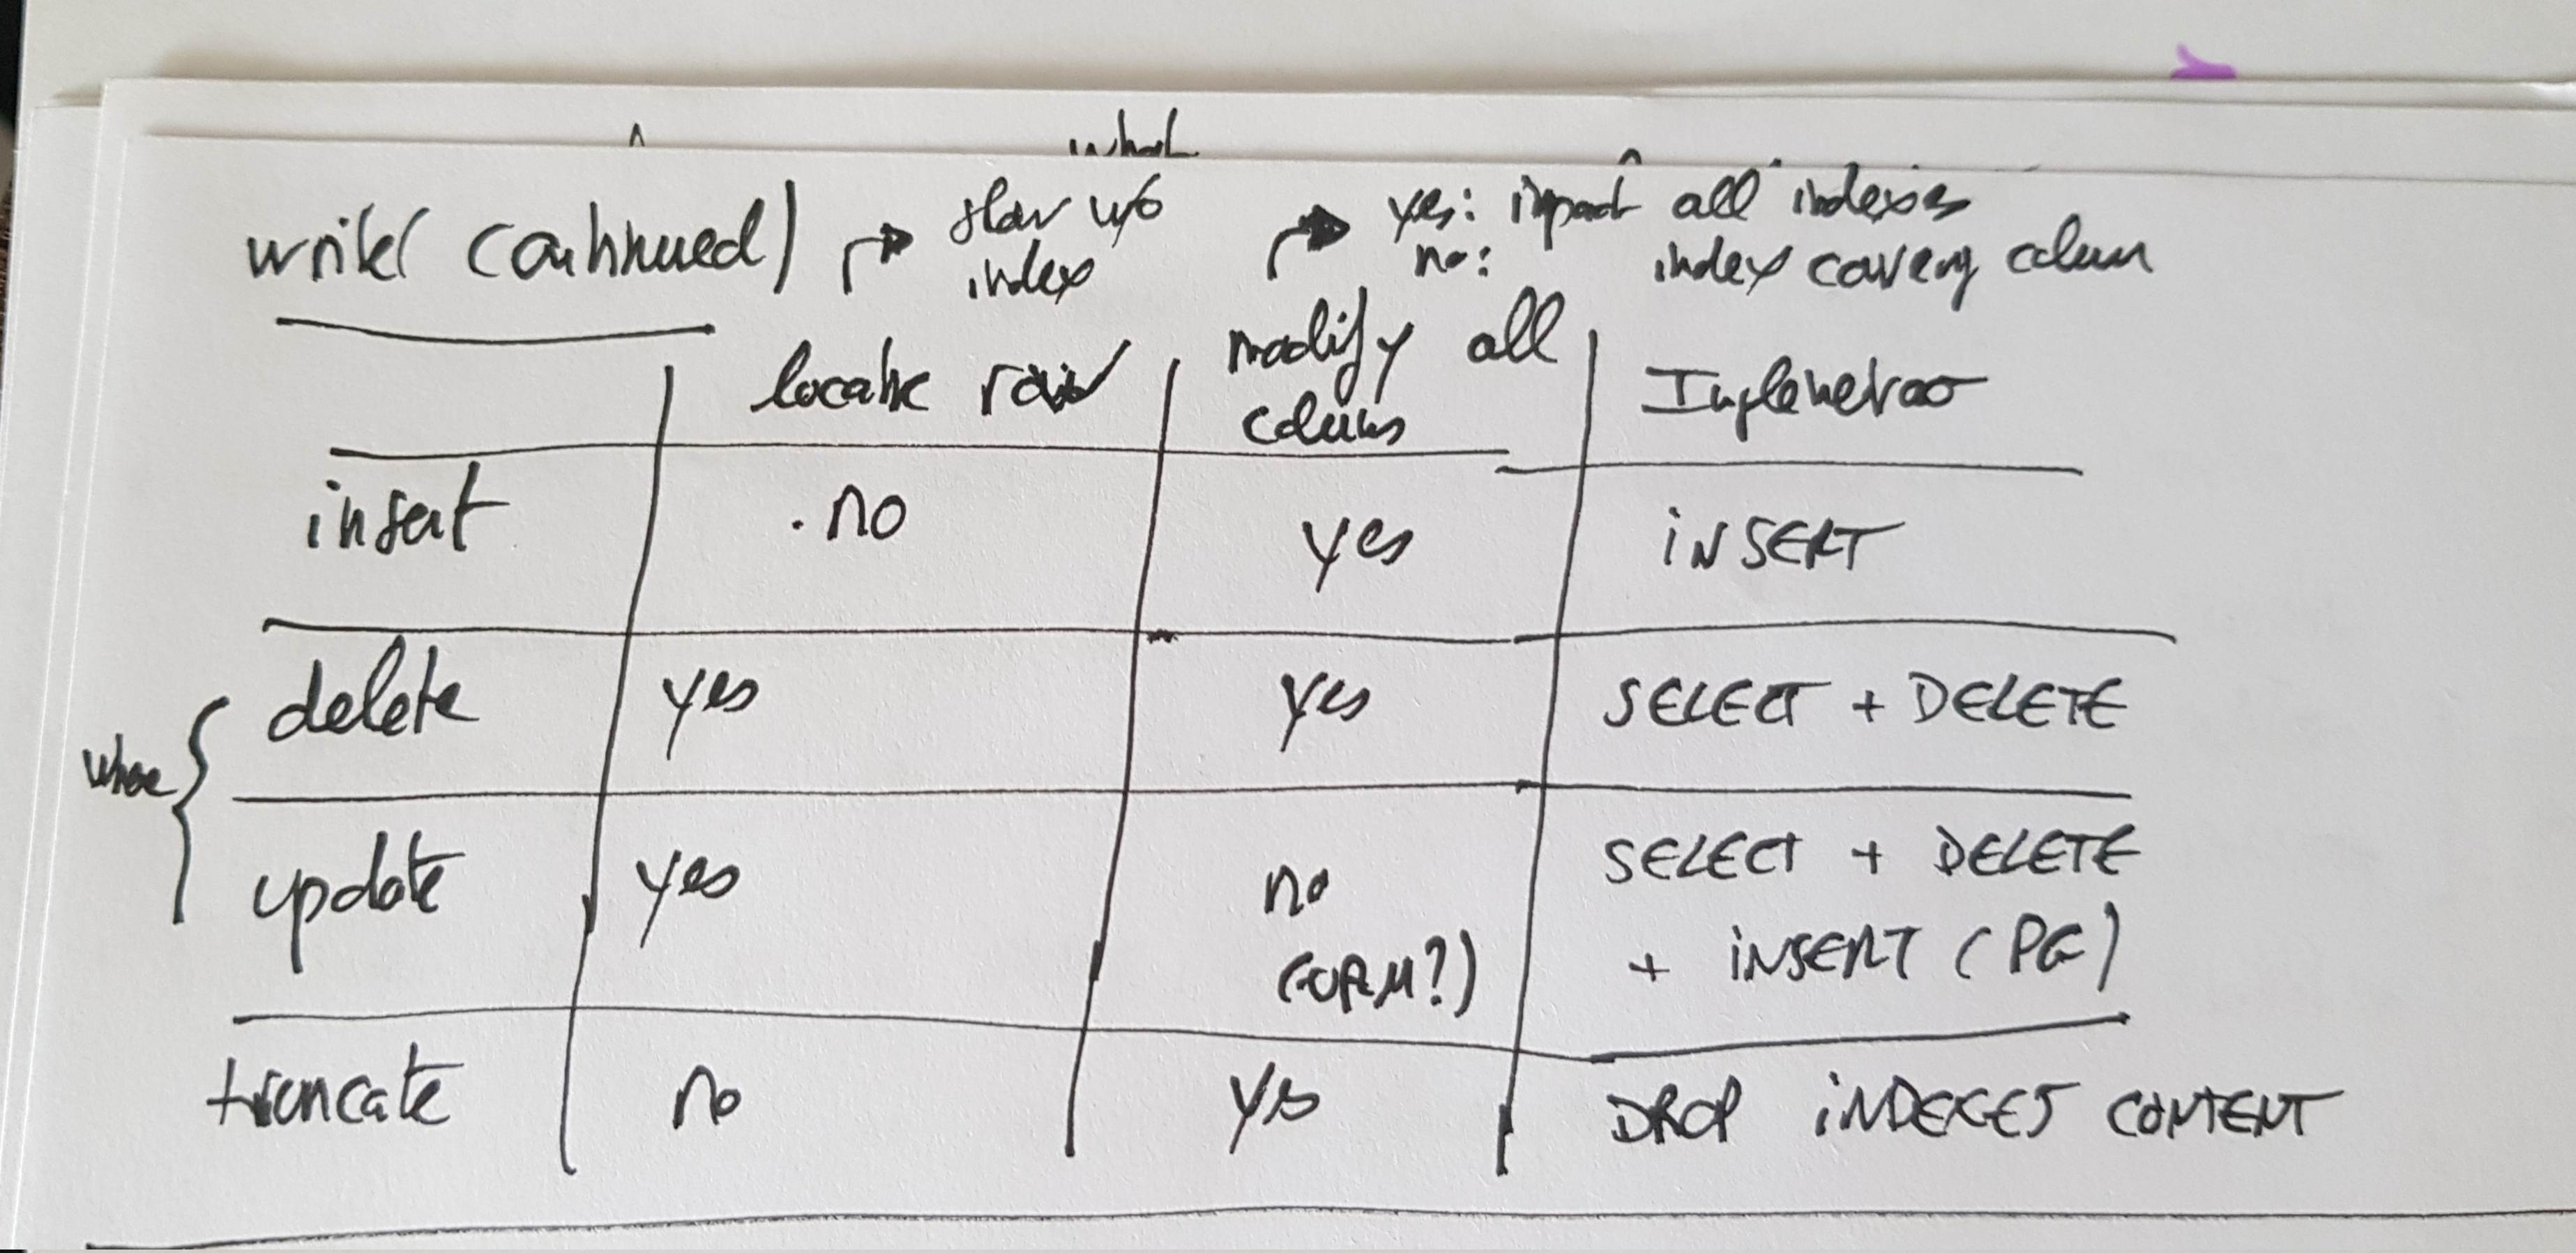 what
write (continued)
slow w/o
index
yes: impact all indexes
no: index covering column
locate row
modify all
columns
Implementation
insert no yes INSERT
where
delete yes yes SELECT + DELETE
update yes no
(ORM?)
SELECT + DELETE
+ INSERT (PG)
truncate no yes DROP INDEXES CONTENT